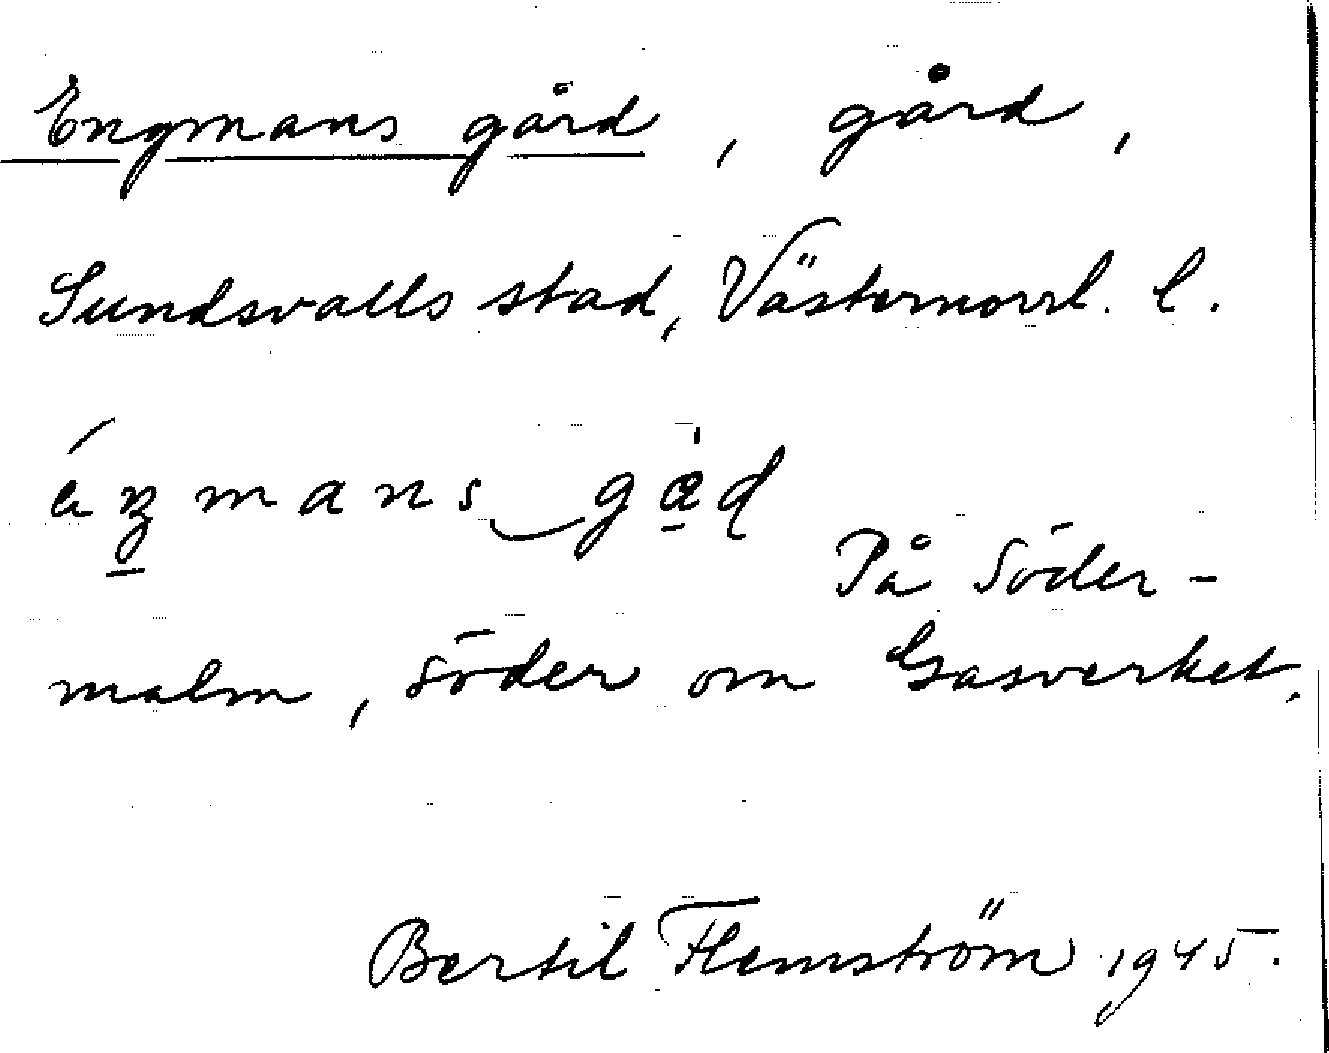 Engmans gård, gård,
Sundsvalls stad, Västernorrl. l.
På Söder-
malm, söder om Gasverket.
Bertil Flemström 1945.